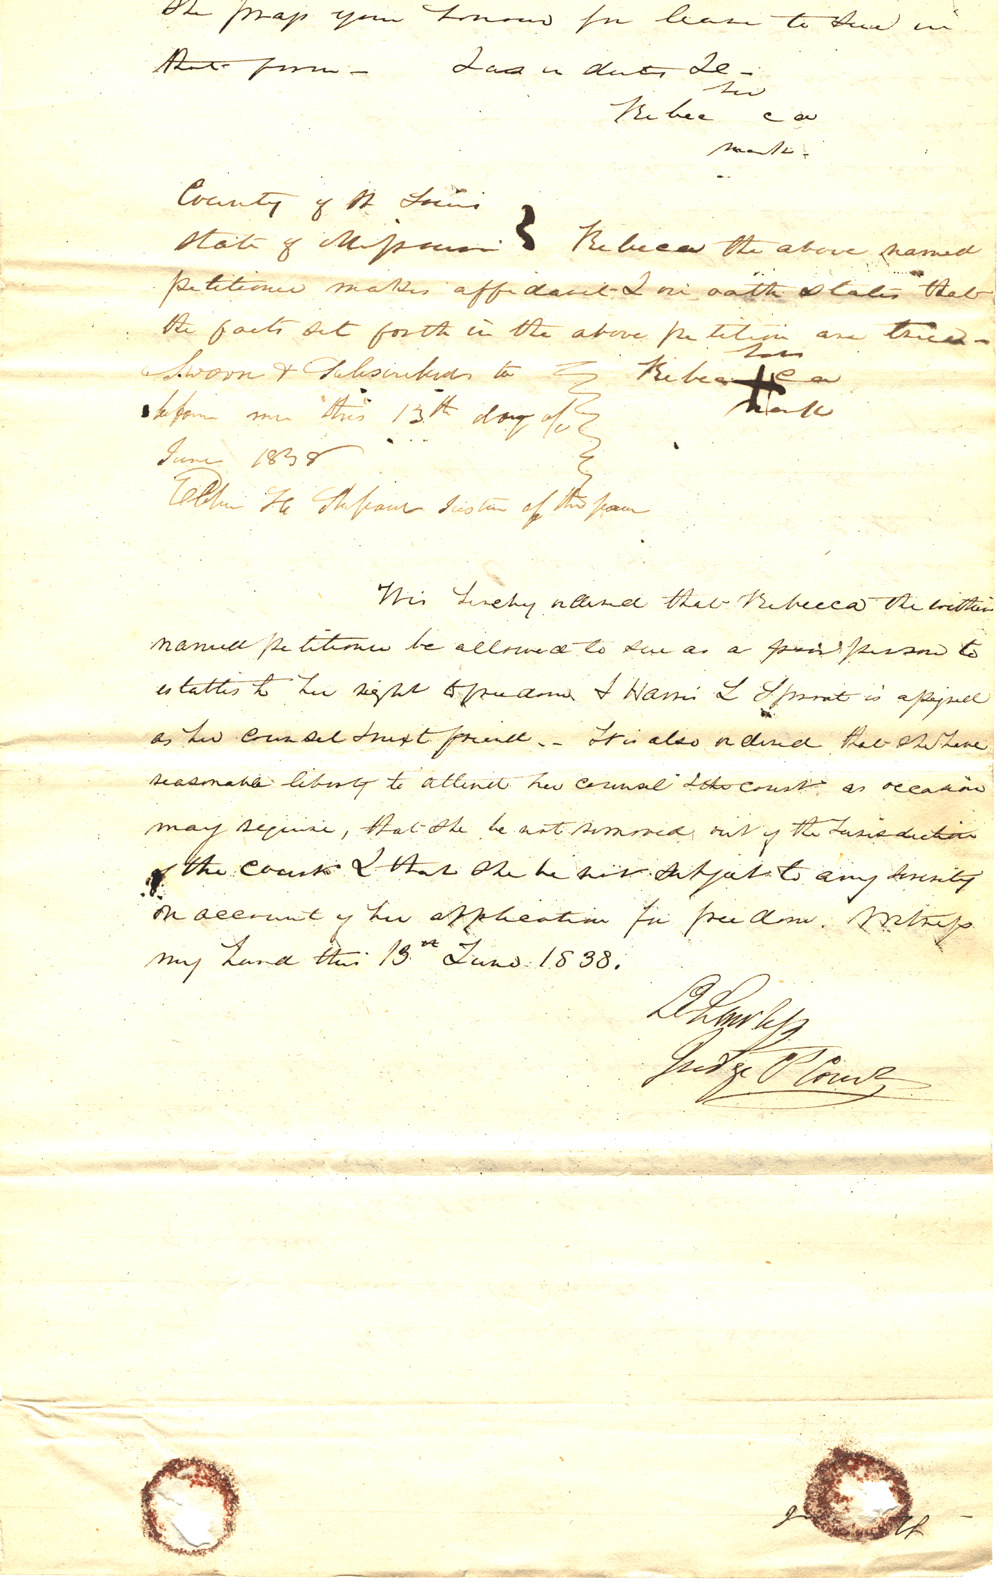 She prays your honour for leave to sue in
that form – & as in duty &c –
her
Rebec ca
mark.
County of St Louis
State of Missouri } Rebecca the above named
petitioner makes affidavit & on oath states that
the facts set forth in the above petition are true –
her
Sworn & Subscribed to Rebec ca
before me this 13th day of mark
June 1838
Justice of the peace
It is hereby ordered that Rebecca the within
named petitioner be allowed to sue as a poor person to
establish her right to freedom & Harris L Sprout is assigned
as her counsel & next friend. – It is also ordered that she have
reasonable liberty to attend her counsel & the court as occasion
may require, that she be not removed out of the Jurisdiction
of the court & that she be not subject to any severity
on account of her application for freedom. Witness
my hand this 13th June 1838.
L E Lawless
Judge C Court